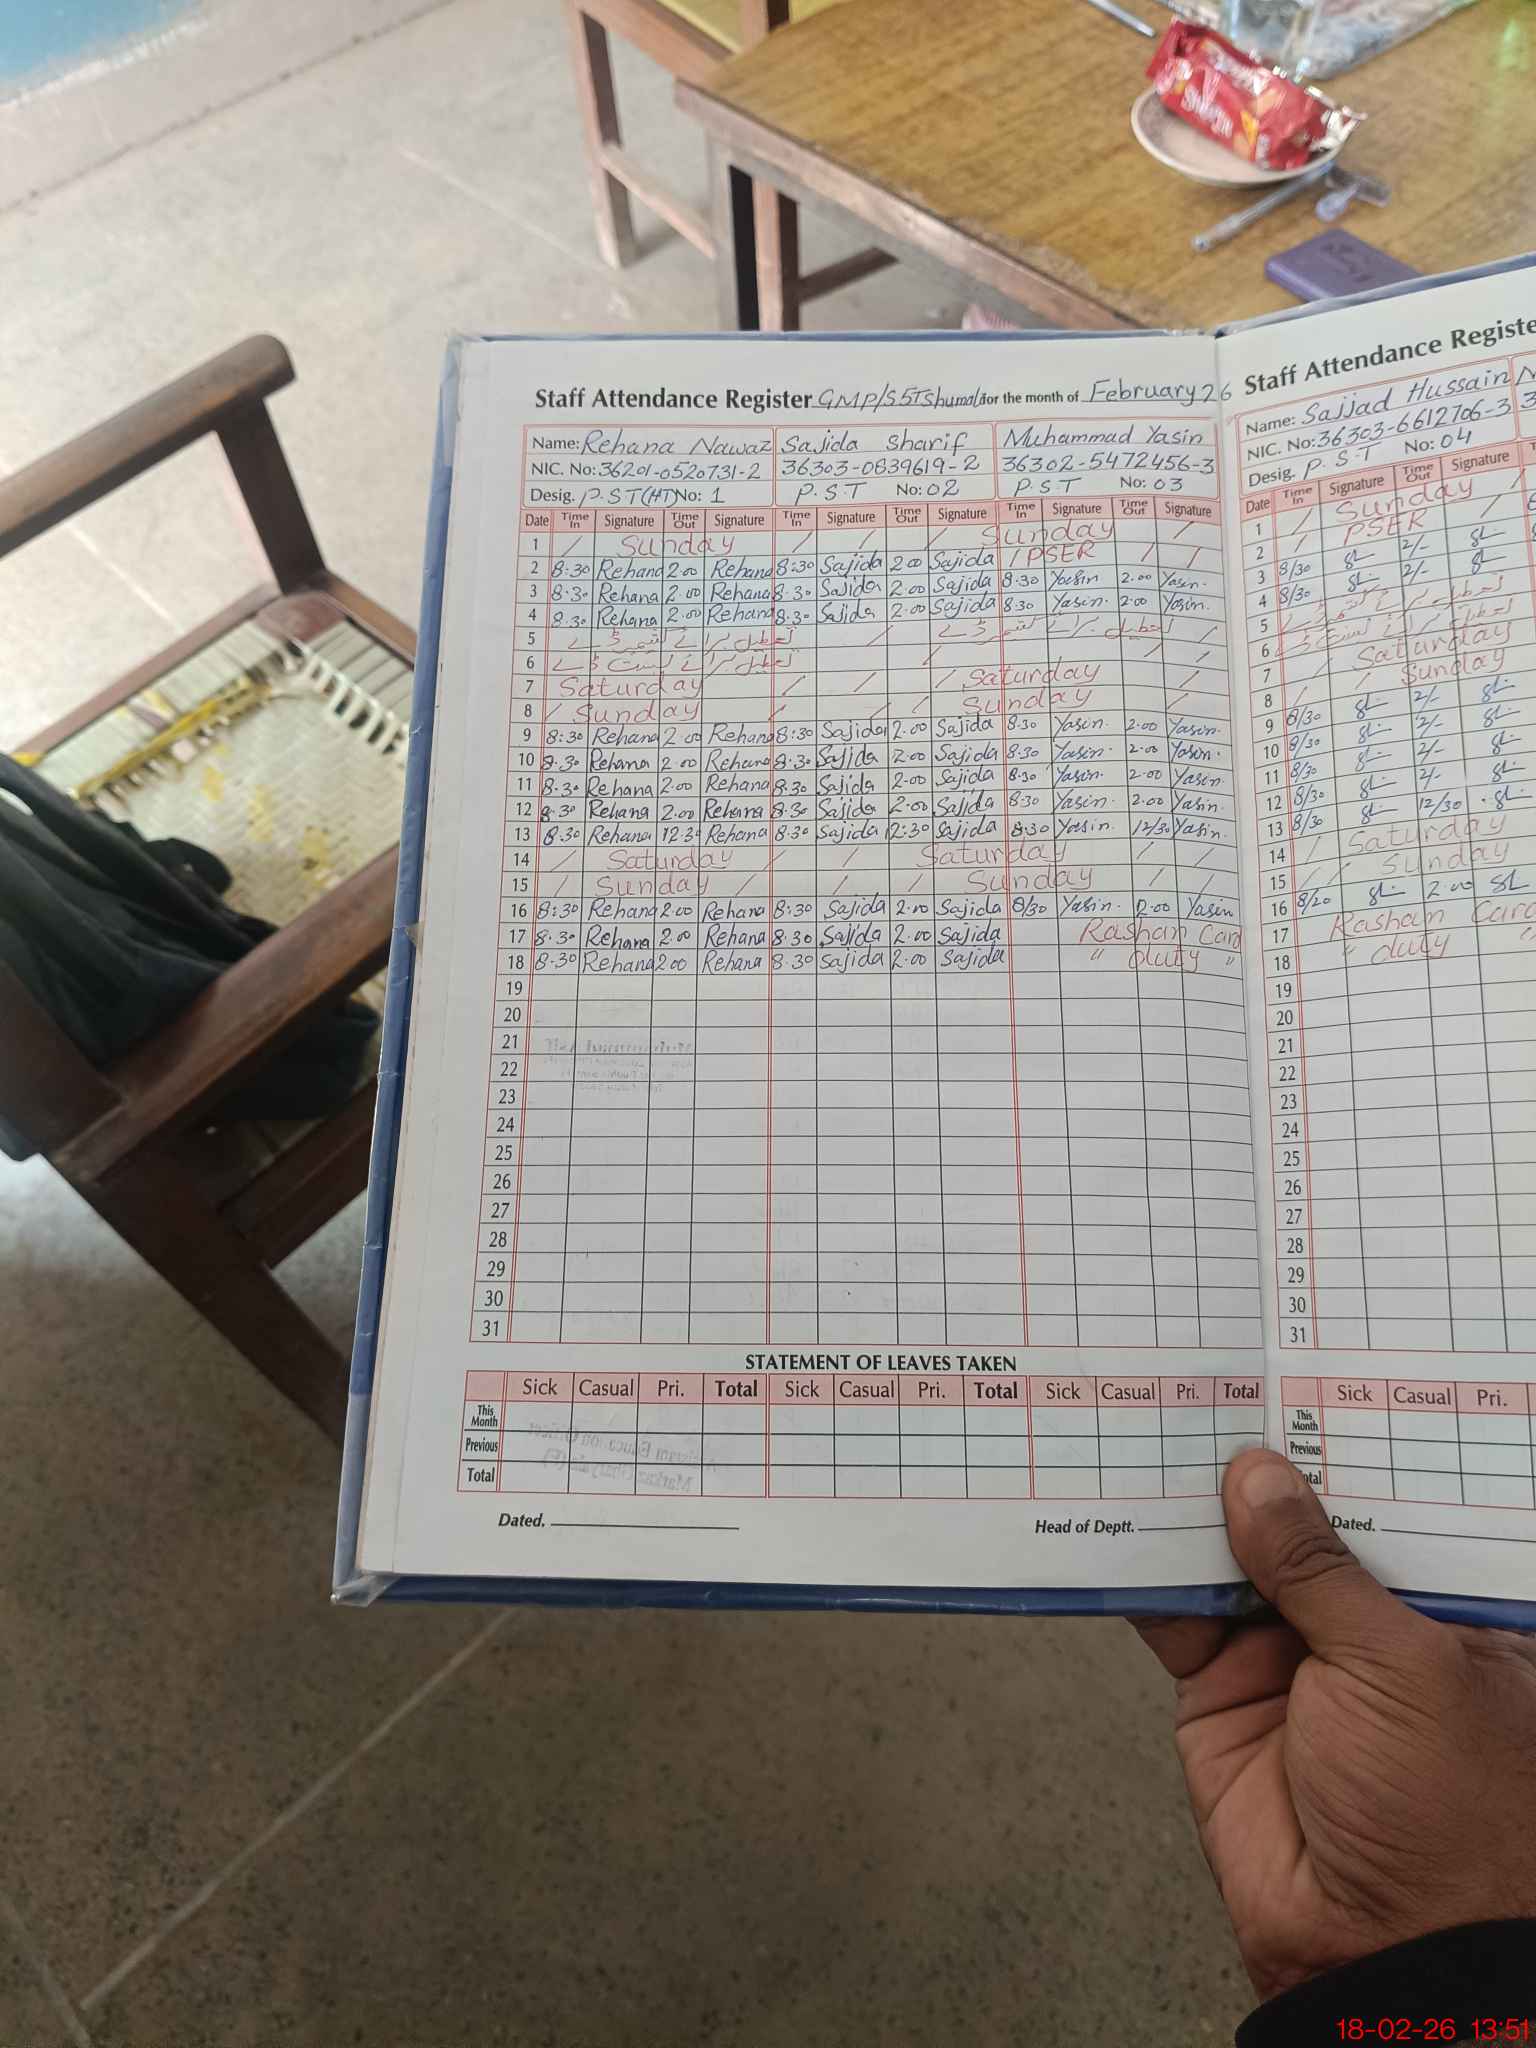 Staff Attendance Register GMP/S 5T Shumali for the month of February 26
Name: Rehana Nawaz Sajida Sharif Muhammad Yasin
NIC. No: 36201-0520731-2 36303-0839619-2 36302-5472456-3
Desig. P.S.T(HT) No: 1 P.S.T No: 02 P.S.T No: 03
Date Time In Signature Time Out Signature Time In Signature Time Out Signature Time In Signature Time Out Signature
1 / Sunday / / / Sunday /
2 8:30 Rehana 2.00 Rehana 8:30 Sajida 2.00 Sajida / PSER / /
3 8.30 Rehana 2.00 Rehana 8.30 Sajida 2.00 Sajida 8.30 Yasin 2.00 Yasin.
4 8.30 Rehana 2.00 Rehana 8.30 Sajida 2.00 Sajida 8.30 Yasin. 2.00 Yasin.
5 تعطیل برائے کشمیر ڈے / تعطیل برائے کشمیر ڈے /
6 تعطیل برائے بسنت ڈے / / /
7 Saturday / / / Saturday /
8 / Sunday / / / Sunday /
9 8:30 Rehana 2.00 Rehana 8:30 Sajida 2.00 Sajida 8.30 Yasin. 2.00 Yasin.
10 8.30 Rehana 2.00 Rehana 8.30 Sajida 2.00 Sajida 8.30 Yasin. 2.00 Yasin.
11 8.30 Rehana 2.00 Rehana 8.30 Sajida 2.00 Sajida 8.30 Yasin. 2.00 Yasin.
12 8.30 Rehana 2.00 Rehana 8.30 Sajida 2.00 Sajida 8.30 Yasin. 2.00 Yasin.
13 8.30 Rehana 12.30 Rehana 8.30 Sajida 12:30 Sajida 8.30 Yasin. 12/30 Yasin.
14 / Saturday / / Saturday / /
15 / Sunday / / / Sunday / /
16 8:30 Rehana 2.00 Rehana 8:30 Sajida 2.00 Sajida 8/30 Yasin. 2.00 Yasin
17 8.30 Rehana 2.00 Rehana 8.30 Sajida 2.00 Sajida Rashan Card
18 8.30 Rehana 2.00 Rehana 8.30 Sajida 2.00 Sajida " duty "
19
20
21
22
23
24
25
26
27
28
29
30
31
STATEMENT OF LEAVES TAKEN
Sick Casual Pri. Total Sick Casual Pri. Total Sick Casual Pri. Total
This Month
Previous
Total
Dated. Head of Deptt.
Staff Attendance Registe
Name: Sajjad Hussain
NIC. No: 36303-6612706-3
Desig. P.S.T No: 04
Date Time In Signature Time Out Signature
1 / Sunday /
2 / PSER /
3 8/30 2/-
4 8/30 2/-
5 تعطیل برائے کشمیر ڈے
6 تعطیل برائے بسنت ڈے
7 / Saturday
8 / / Sunday
9 8/30 2/-
10 8/30 2/-
11 8/30 2/-
12 8/30 2/-
13 8/30 12/30
14 / Saturday
15 / / Sunday
16 8/20 2.00
17 Rashan Card
18 " duty "
19
20
21
22
23
24
25
26
27
28
29
30
31
Sick Casual Pri.
This Month
Previous
otal
Dated.
18-02-26 13:51